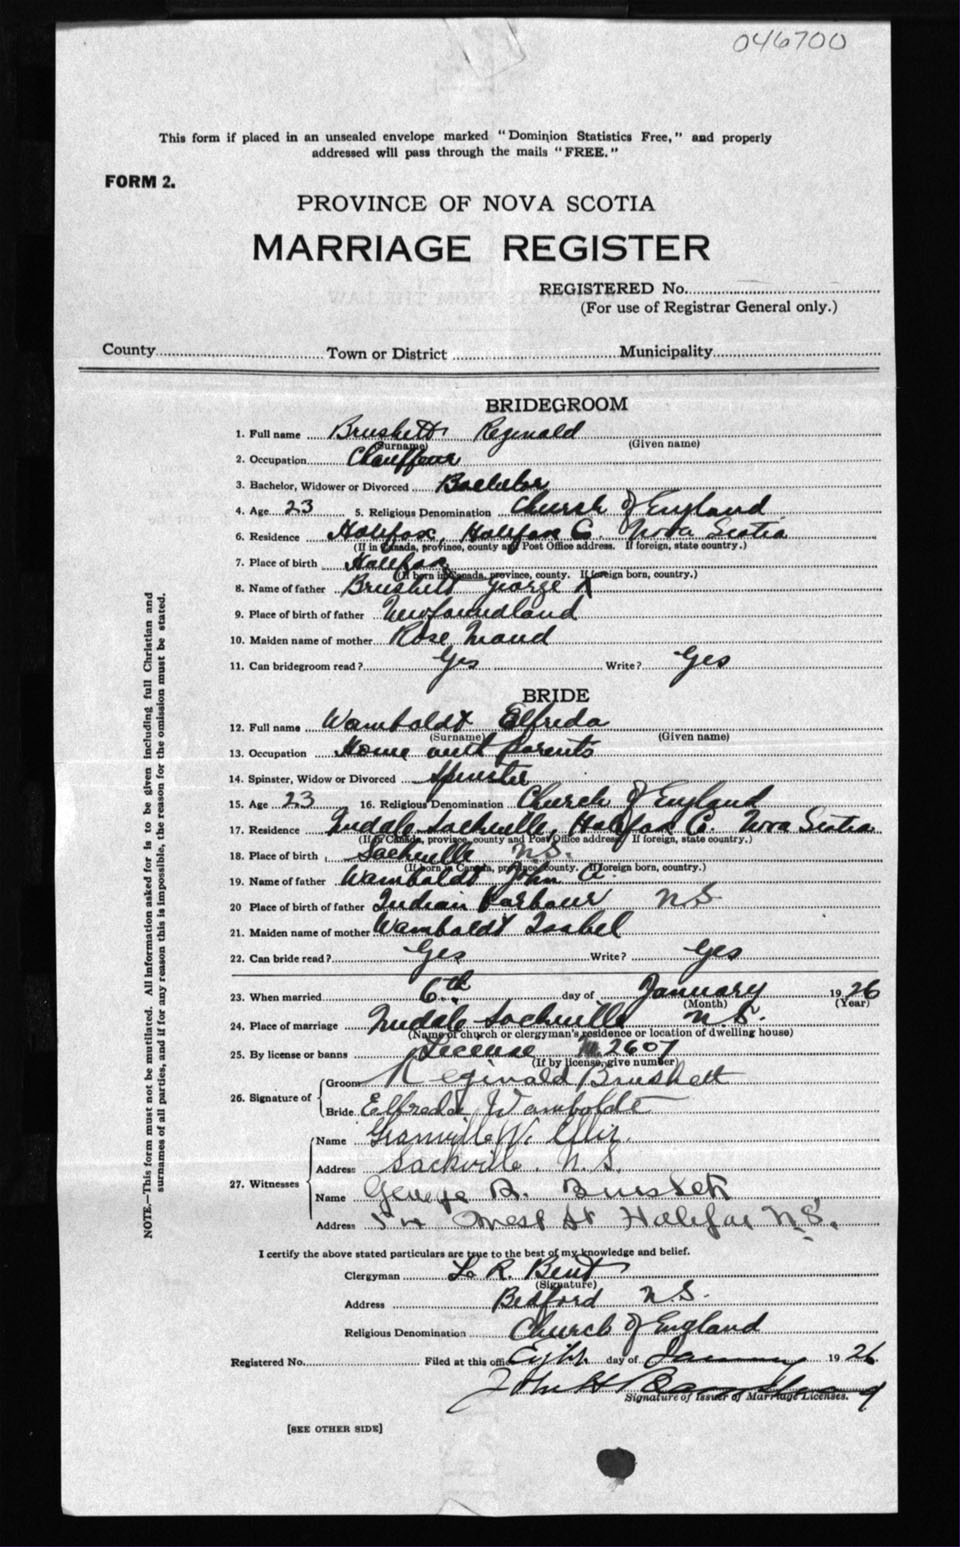 046700
This form if placed in an unsealed envelope marked "Dominion Statistics Free," and properly
addressed will pass through the mails "FREE."
FORM 2.
PROVINCE OF NOVA SCOTIA
MARRIAGE REGISTER
REGISTERED No.
(For use of Registrar General only.)
County Town or District Municipality
BRIDEGROOM
1. Full name Brushett Reginald
(Surname) (Given name)
2. Occupation Chauffeur
3. Bachelor, Widower or Divorced Bachelor
4. Age 23 5. Religious Denomination Church of England
6. Residence Halifax, Halifax C. Nova Scotia
(If in Canada, province, county and Post Office address. If foreign, state country.)
7. Place of birth Halifax
(If born in Canada, province, county. If foreign born, country.)
8. Name of father Brushett George
9. Place of birth of father Newfoundland
10. Maiden name of mother Rose Maud
11. Can bridegroom read? Yes Write? Yes
BRIDE
12. Full name Wamboldt Elfreda
(Surname) (Given name)
13. Occupation Home with Parents
14. Spinster, Widow or Divorced Spinster
15. Age 23 16. Religious Denomination Church of England
17. Residence Sackville, Halifax C. Nova Scotia
(If in Canada, province, county and Post Office address. If foreign, state country.)
18. Place of birth Sackville N.S.
(If born in Canada, province, county. If foreign born, country.)
19. Name of father Wamboldt John A.
20 Place of birth of father Indian Harbour N S
21. Maiden name of mother Wamboldt Isabel
22. Can bride read? Yes Write? Yes
23. When married 6th day of January 1926
(Month) (Year)
24. Place of marriage Sackville N.S.
(Name of church or clergyman's residence or location of dwelling house)
25. By license or banns License 2607
(If by license, give number)
26. Signature of Groom Reginald Brushett
Bride Elfreda Wamboldt
27. Witnesses Name Granville W.
Address Sackville. N.S.
Name George B.
Address 54 St Halifax N.S.
I certify the above stated particulars are true to the best of my knowledge and belief.
Clergyman L. R. Bent
(Signature)
Address Bedford N.S.
Religious Denomination Church of England
Registered No. Filed at this office day of January 1926
John H
Signature of Issuer of Marriage Licenses.
[SEE OTHER SIDE]
NOTE.—This form must not be mutilated. All information asked for is to be given including full Christian and
surnames of all parties, and if for any reason this is impossible, the reason for the omission must be stated.